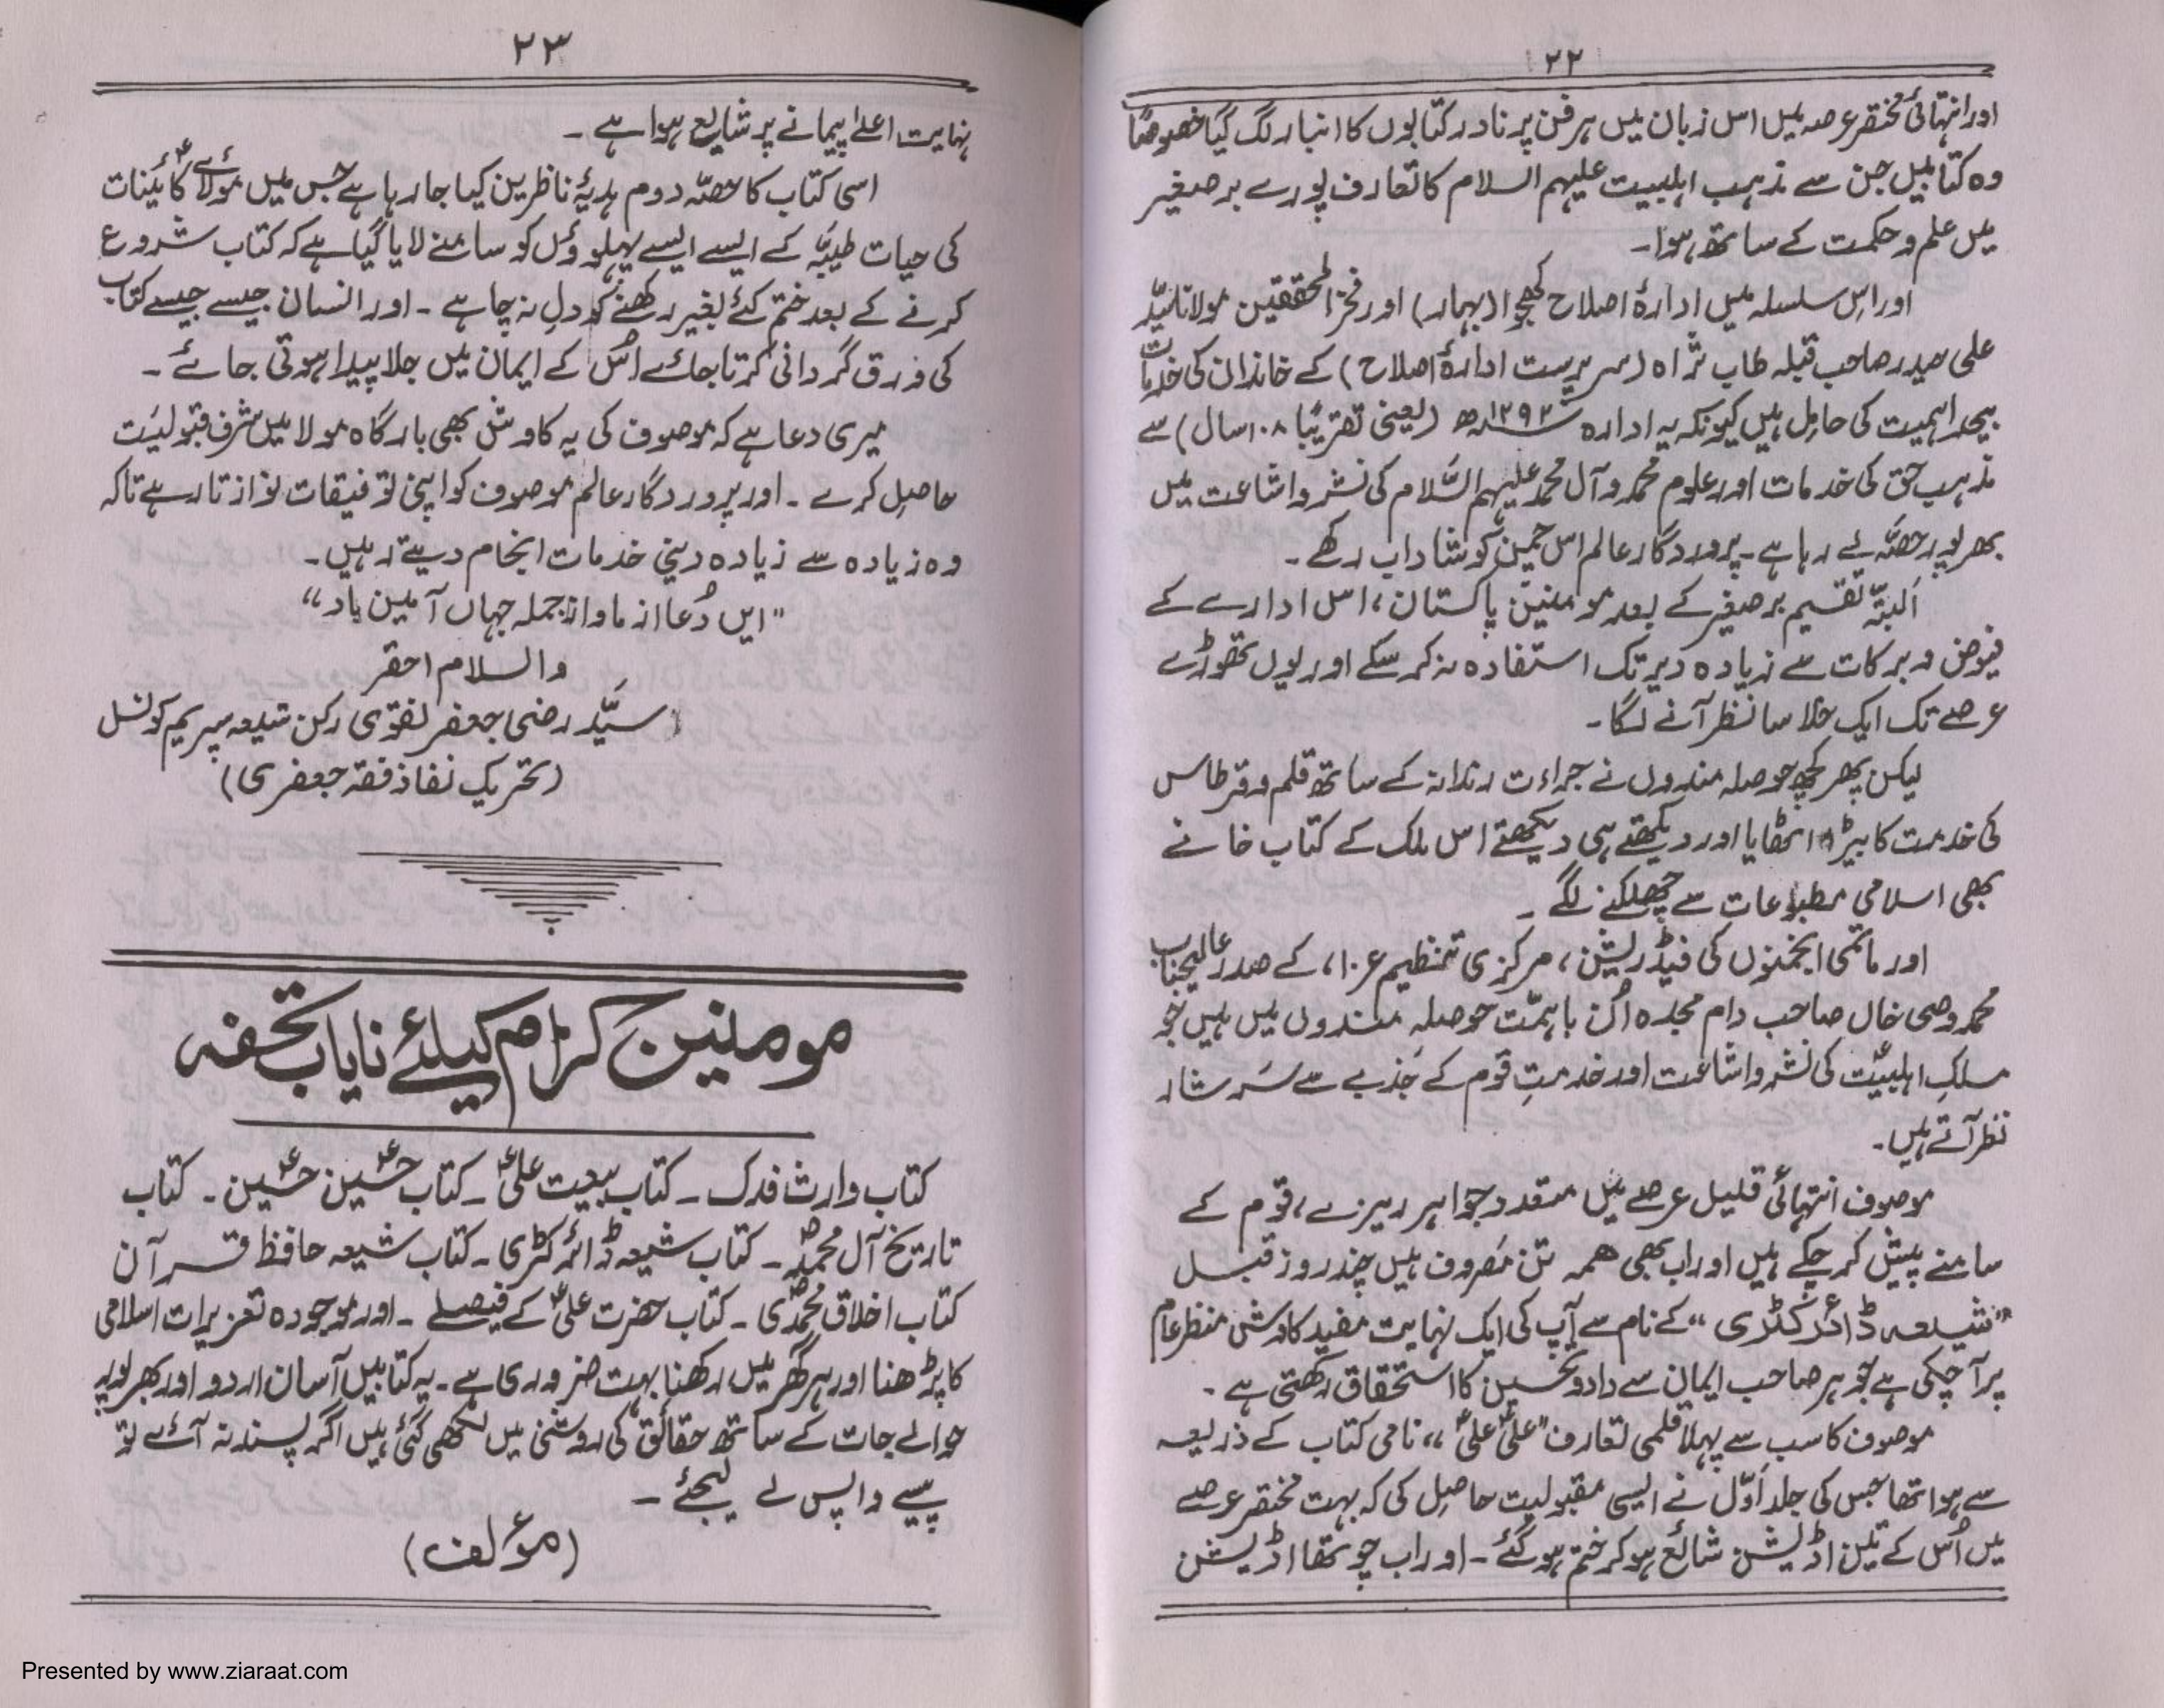 ۲۲
اور انتہائی مختصر عرصہ میں اس زبان میں ہر فن پر نادر کتابوں کا انبار لگ گیا خصوصًا
وہ کتابیں جن سے مذہب اہلبیت علیہم السلام کا تعارف پورے بر صغیر
میں علم و حکمت کے ساتھ ہوا۔
اور اس سلسلہ میں ادارۂ اصلاح کھجوا (بہار) اور فخر المحققین مولانا سیّد
علی حیدر صاحب قبلہ طاب ثراہ (سرپرست ادارۂ اصلاح) کے خاندان کی خدمات
بیحد اہمیت کی حامل ہیں کیونکہ یہ ادارہ ۱۲۹۲ھ (یعنی تقریبًا ۱۰۸ سال) سے
مذہب حق کی خدمات اور علوم محمد و آل محمد علیہم السَّلام کی نشر و اشاعت میں
بھرپور حصّہ لے رہا ہے۔ پروردگار عالم اس چمن کو شاداب رکھے۔
اَلبتّہ تقسیم بر صغیر کے بعد مومنین پاکستان، اس ادارے کے
فیوض و برکات سے زیادہ دیر تک استفادہ نہ کر سکے اور یوں تھوڑے
عرصے تک ایک خلا سا نظر آنے لگا۔
لیکن پھر کچھ حوصلہ مندوں نے جراءت رندانہ کے ساتھ قلم و قرطاس
کی خدمت کا بیڑہ اٹھایا اور دیکھتے ہی دیکھتے اس ملک کے کتاب خانے
بھی اسلامی مطبوعات سے چھلکنے لگے۔
اور ماتمی انجمنوں کی فیڈریشن، مرکزی تنظیم عزا، کے صدر عالیجناب
محمد وصی خاں صاحب دام مجدہ اُن باہمّت حوصلہ مندوں میں ہیں جو
مسلکِ اہلبیتؑ کی نشر و اشاعت اور خدمتِ قوم کے جَذبے سے سَرشار
نظر آتے ہیں۔
موصوف انتہائی قلیل عرصے میں متعدد جواہر ریزے، قوم کے
سامنے پیش کر چکے ہیں اور اب بھی ہمہ تن مَصروف ہیں چند روز قبل
"شیعہ ڈائرکٹری" کے نام سے آپ کی ایک نہایت مفید کاوش منظر عام
پر آ چکی ہے جو ہر صاحب ایمان سے داد و تحسین کا استحقاق رکھتی ہے۔
موصوف کا سب سے پہلا قلمی تعارف "علیؑ علیؑ" نامی کتاب کے ذریعہ
سے ہوا تھا جس کی جلد اَوّل نے ایسی مقبولیت حاصل کی کہ بہت مختصر عرصے
میں اُس کے تین اڈیشن شائع ہو کر ختم ہو گئے۔ اور اب چوتھا اڈیشن
۲۳
نہایت اعلےٰ پیمانے پر شایع ہوا ہے۔
اسی کتاب کا حصّہ دوم ہدیۂ ناظرین کیا جا رہا ہے جس میں مولائےؑ کائنات
کی حیات طیبّہ کے ایسے ایسے پہلوؤں کو سامنے لایا گیا ہے کہ کتاب شروع
کرنے کے بعد ختم کئے بغیر رکھنے کو دل نہ چاہے۔ اور انسان جیسے جیسے کتاب
کی ورق گردانی کرتا جائے اُس کے ایمان میں جلا پیدا ہوتی جائے۔
میری دعا ہے کہ موصوف کی یہ کاوش بھی بارگاہ مولا میں شرف قبولیَت
حاصل کرے۔ اور پروردگار عالم موصوف کو اپنی توفیقات نوازتا رہے تاکہ
وہ زیادہ سے زیادہ دینی خدمات انجام دیتے رہیں۔
"ایں دُعا از ما و از جملہ جہاں آمین باد"
والسلام احقر
سیَّد رضی جعفر نقوی رکن شیعہ سپریم کونسل
(تحریک نفاذ فقہ جعفری)
مومنین کرام کیلئے نایاب تحفہ
کتاب وارث فدک۔ کتاب بیعت علیؑ۔ کتاب حسینؑ حسینؑ۔ کتاب
تاریخ آل محمدؐ۔ کتاب شیعہ ڈائرکٹری۔ کتاب شیعہ حافظ قرآن
کتاب اخلاق محمدؐی۔ کتاب حضرت علیؑ کے فیصلے۔ اور موجودہ تعزیرات اسلامی
کا پڑھنا اور ہر گھر میں رکھنا بہت ضروری ہے۔ یہ کتابیں آسان اردو اور بھرپور
حوالے جات کے ساتھ حقائق کی روشنی میں لکھی گئی ہیں اگر پسند نہ آئے تو
پیسے واپس لے لیجئے۔
(مؤلف)
Presented by www.ziaraat.com